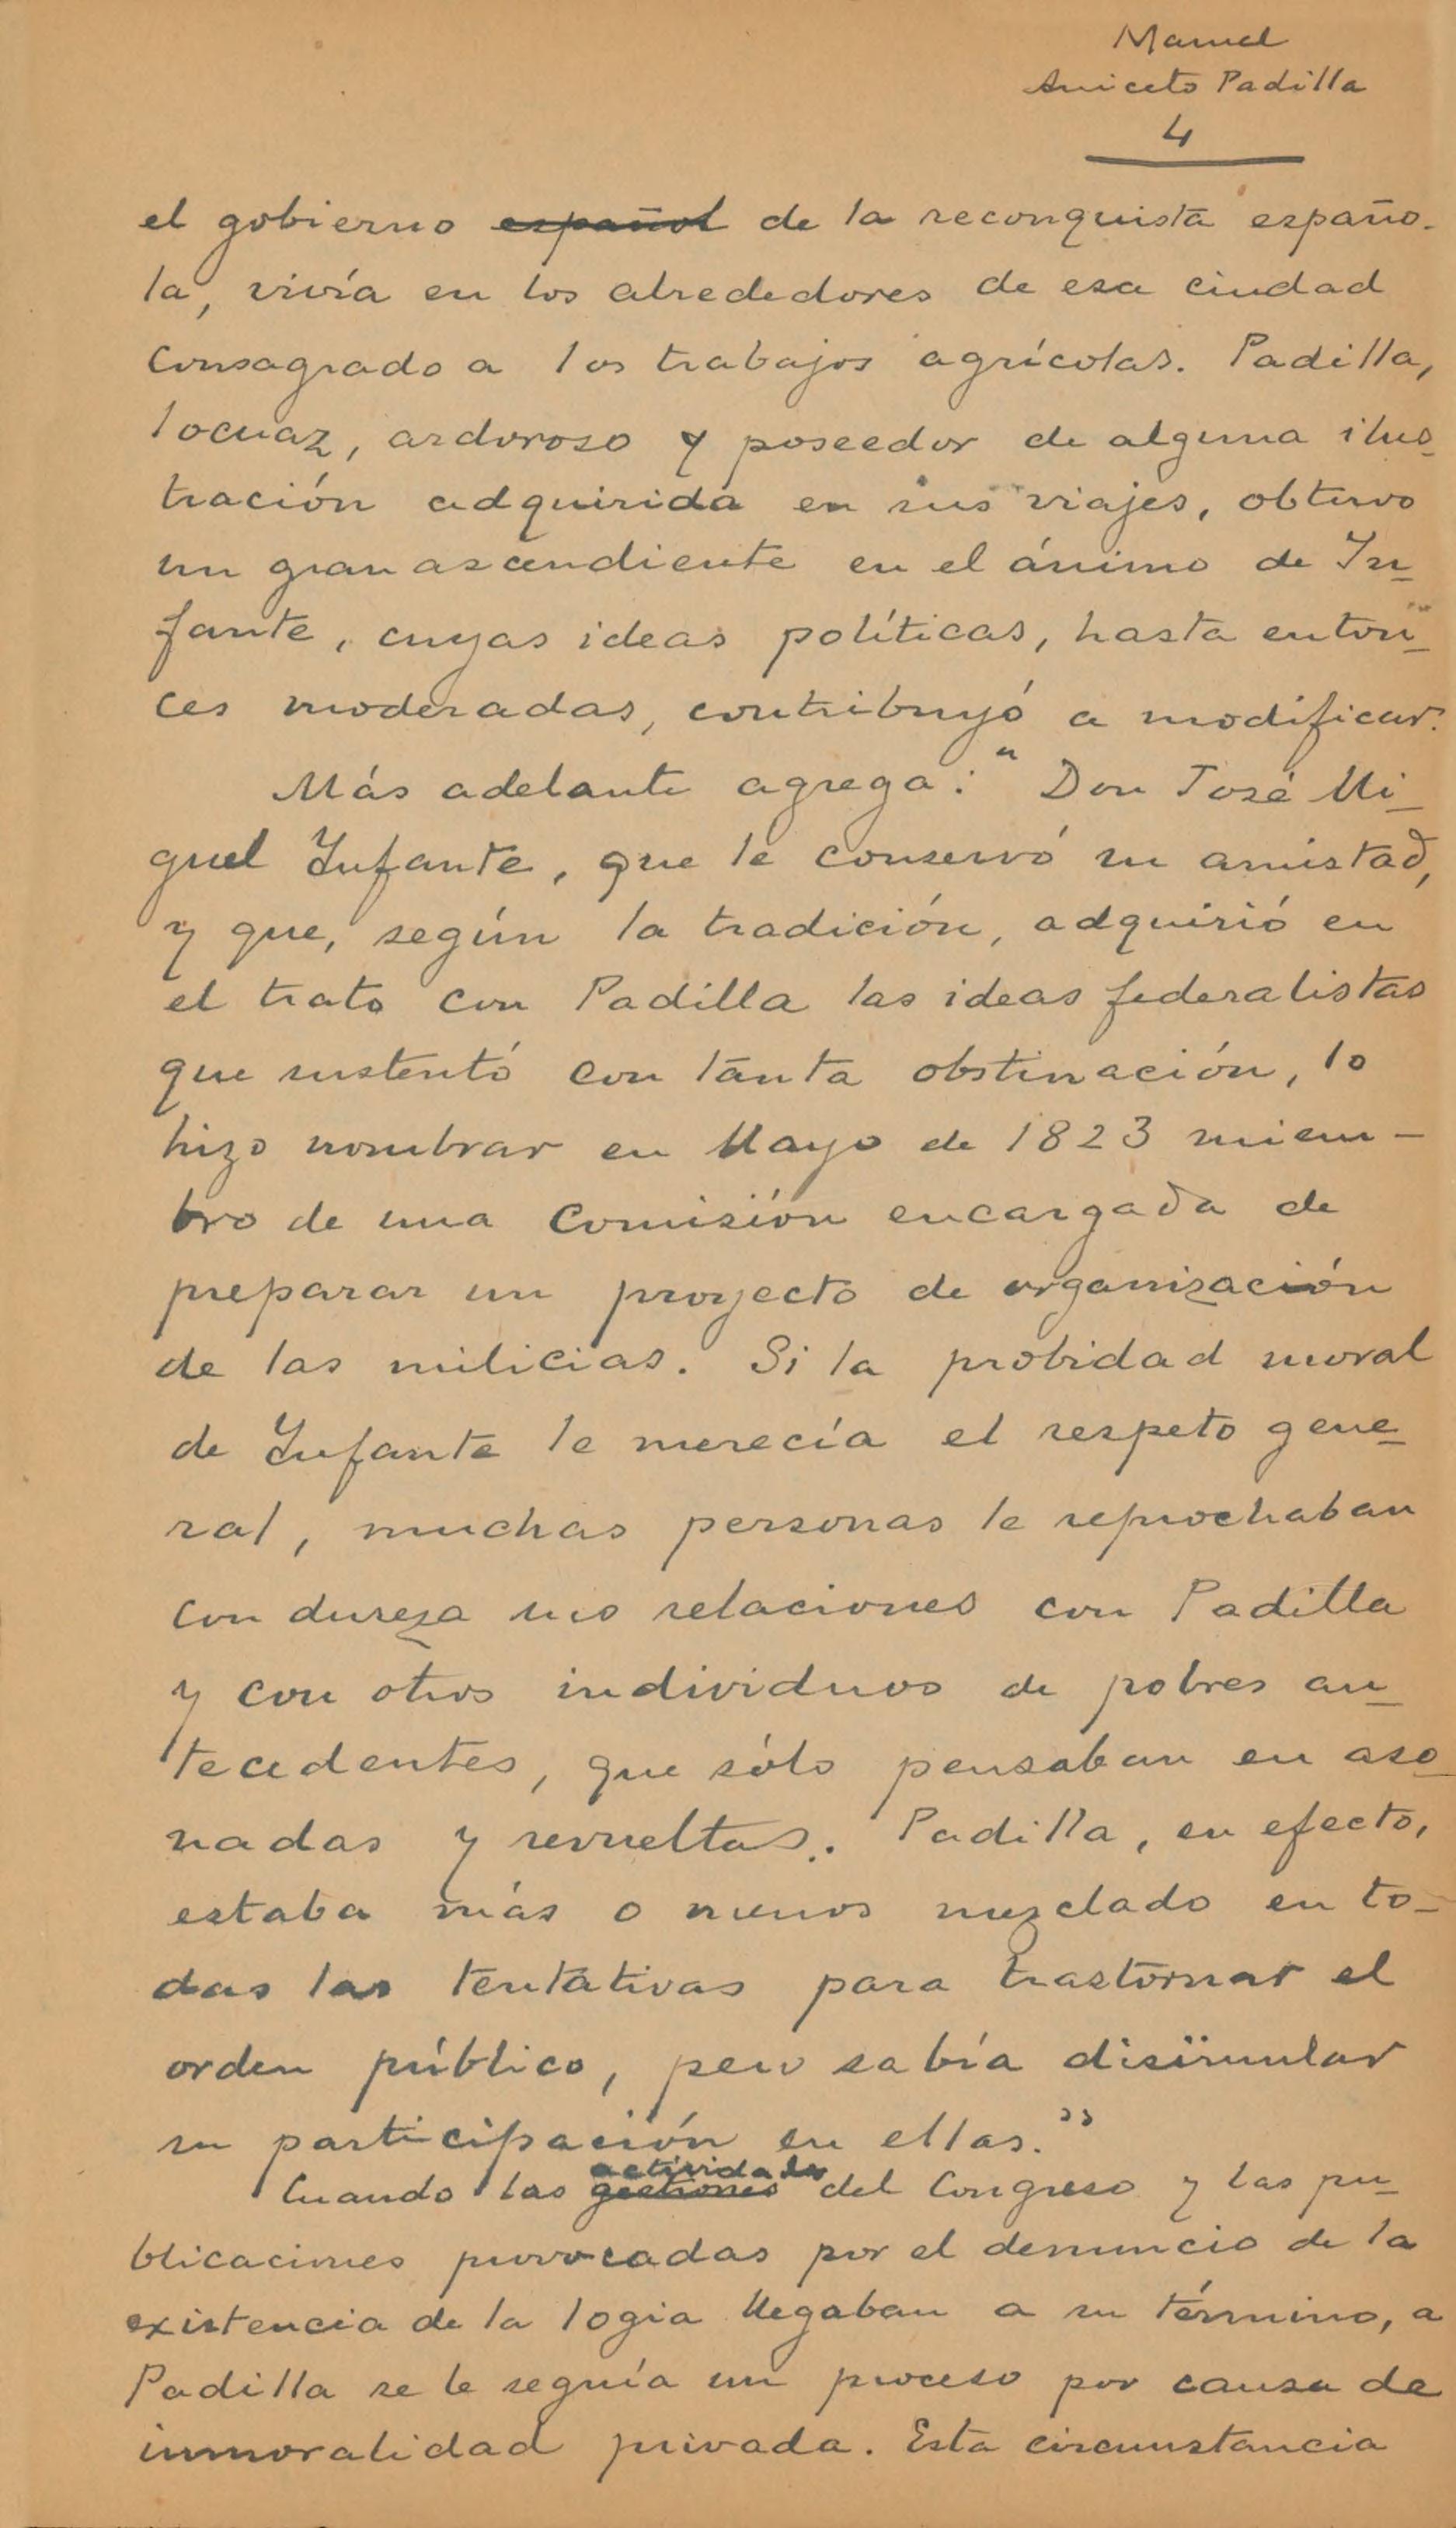 Manuel
Aniceto Padilla
4
el gobierno español de la reconquista españo-
la, vivía en los alrededores de esa ciudad
consagrado a los trabajos agrícolas. Padilla,
locuaz, ardoroso y poseedor de alguna ilus-
tración adquirida en sus viajes, obtuvo
un gran ascendiente en el ánimo de In-
fante, cuyas ideas políticas, hasta enton-
ces moderadas, contribuyó a modificar."
Más adelante agrega: "Don José Mi-
guel Infante, que le conservó su amistad,
y que, según la tradición, adquirió en
el trato con Padilla las ideas federalistas
que sustentó con tanta obstinación, lo
hizo nombrar en Mayo de 1823 miem-
bro de una Comisión encargada de
preparar un proyecto de organización
de las milicias. Si la probidad moral
de Infante le merecía el respeto gene-
ral, muchas personas le reprochaban
con dureza sus relaciones con Padilla
y con otros individuos de pobres an-
tecedentes, que sólo pensaban en aso-
nadas y revueltas. Padilla, en efecto,
estaba más o menos mezclado en to-
das las tentativas para trastornar el
orden público, pero sabía disimular
su participación en ellas."
actividades
Cuando las gestiones del Congreso y las pu-
blicaciones provocadas por el denuncio de la
existencia de la logia llegaban a su término, a
Padilla se le seguía un proceso por causa de
inmoralidad privada. Esta circunstancia